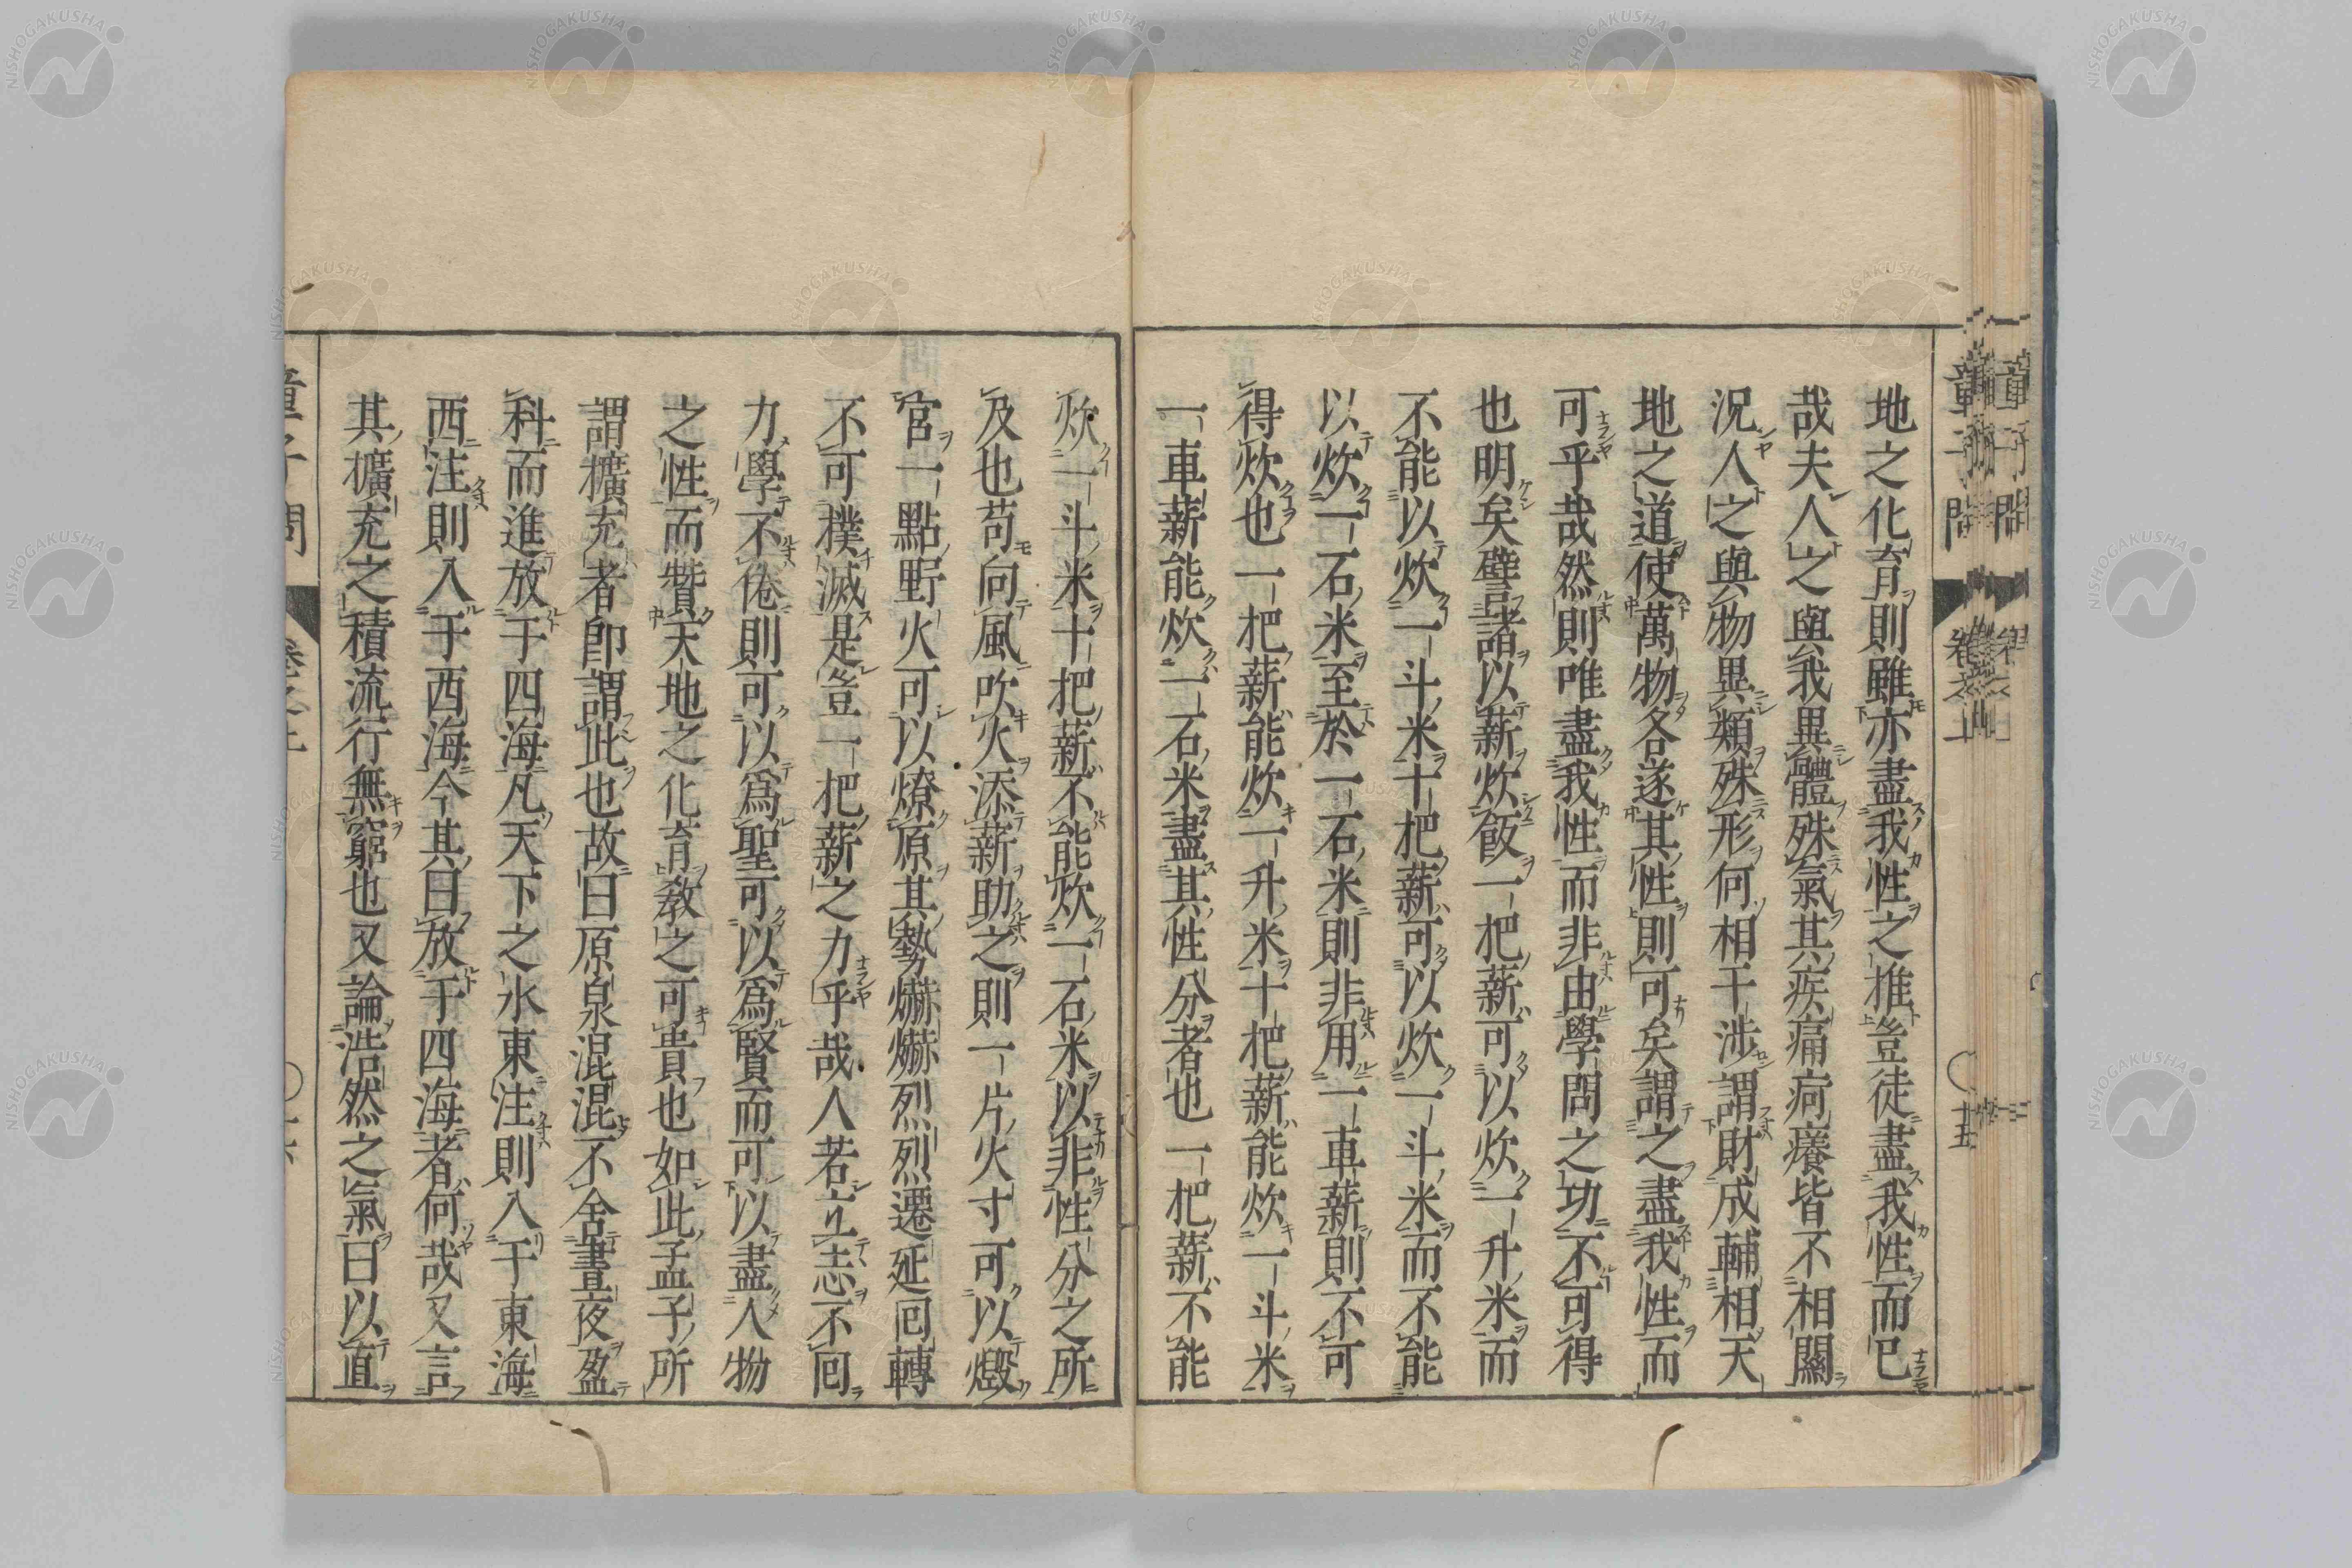 地之化育則雖亦盡我性之推豈徒盡我性而已
哉夫人之與我異體殊氣其疾痛疴癢皆不相關
況人之與物異類殊形何相干涉謂財成輔相天
地之道使萬物各遂其性則可矣謂之盡我性而
可乎哉然則唯盡我性而非由學問之功不可得
也明矣譬諸以薪炊飯一把薪可以炊一升米而
不能以炊一斗米十把薪可以炊一斗米而不能
以炊一石米至於一石米則非用一車薪則不可
得炊也一把薪能炊一升米十把薪能炊一斗米
一車薪能炊一石米盡其性分者也一把薪不能
炊一斗米十把薪不能炊一石米以非性分之所
及也苟向風吹火添薪助之則一片火寸可以燬
官一點野火可以燎原其勢爀爀烈烈遷延回轉
不可撲滅是豈一把薪之力乎哉人若立志不回
力學不倦則可以爲聖可以爲賢而可以盡人物
之性而贊天地之化育教之可貴也如此孟子所
謂擴充者卽謂此也故曰原泉混混不舍晝夜盈
科而進放于四海凡天下之水東注則入于東海
西注則入于西海今其曰放于四海者何哉又言
其擴充之積流行無窮也又論浩然之氣曰以直
童子問
卷之上
十五
NISHOGAKUSHA